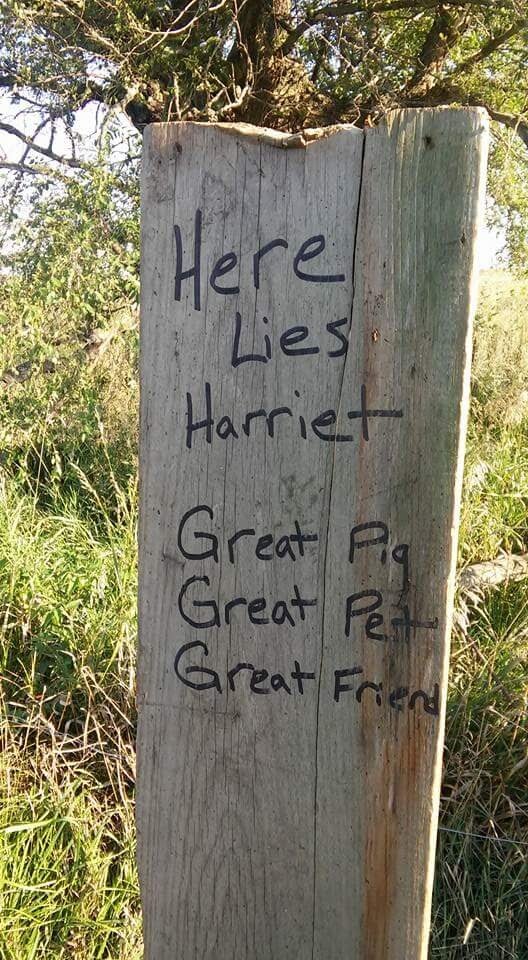 Here
Lies
Harriet
Great Pig
Great Pet
Great Friend